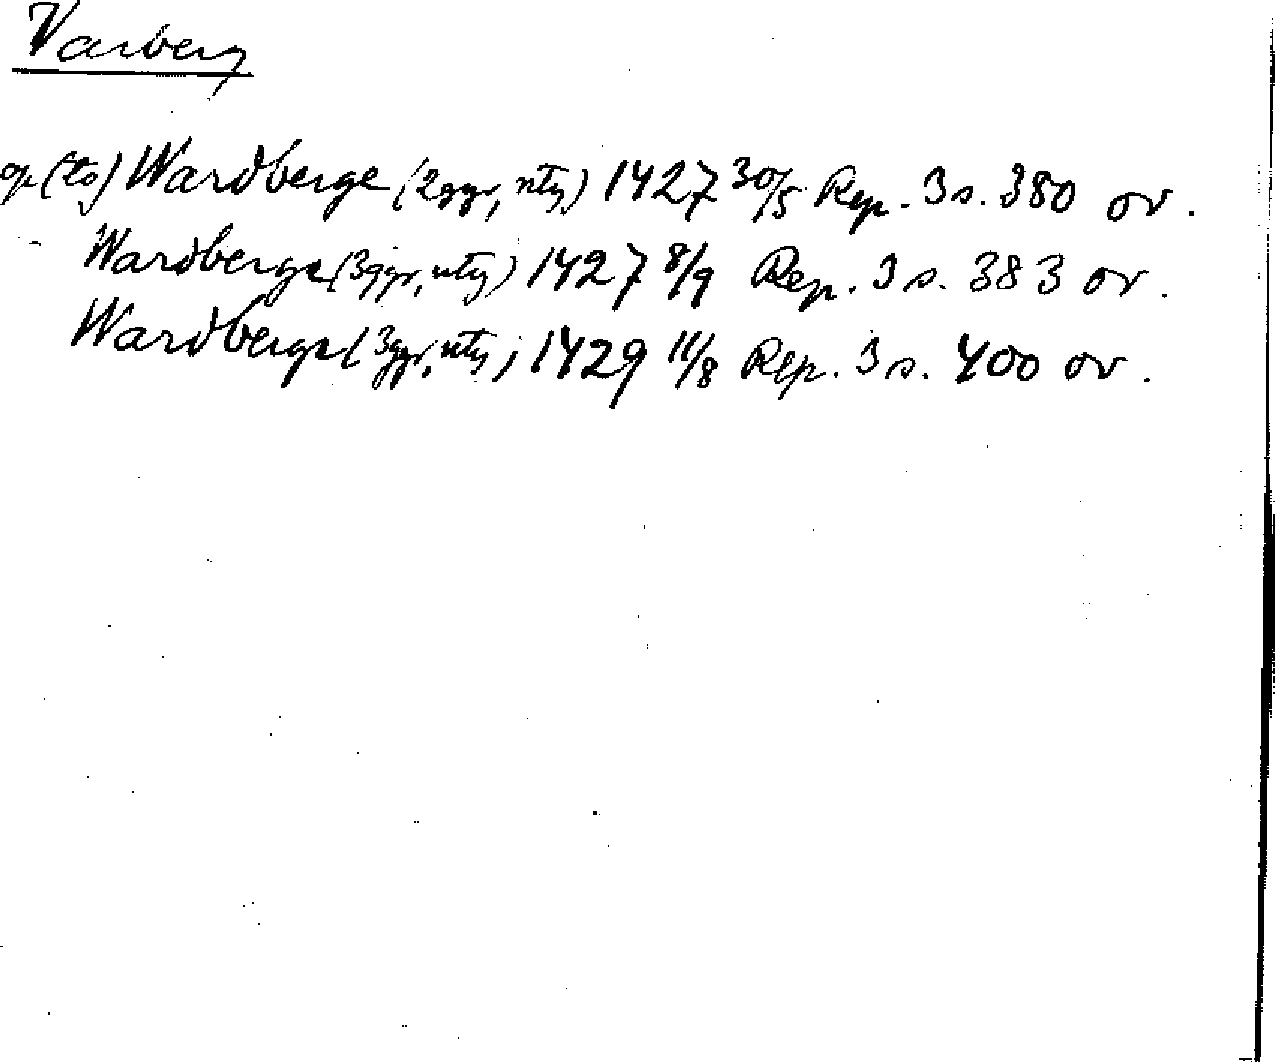 Varberg
op (to) Wardberge (2ggr, utg) 1427 30/5 Rep. 3 s. 380 or.
Wardberge (3ggr, utg) 1427 8/9 Rep. 3 s. 383 or.
Wardberge (3ggr, utg) 1429 11/8 Rep. 3 s. 400 or.